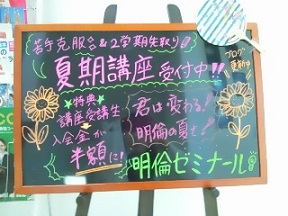 苦手克服&2学期先取り
夏期講座 受付中!!
ブログ
更新中
特典
講座受講生
入会金が
半額に!
君は変わる!
明倫の夏で!
明倫ゼミナール